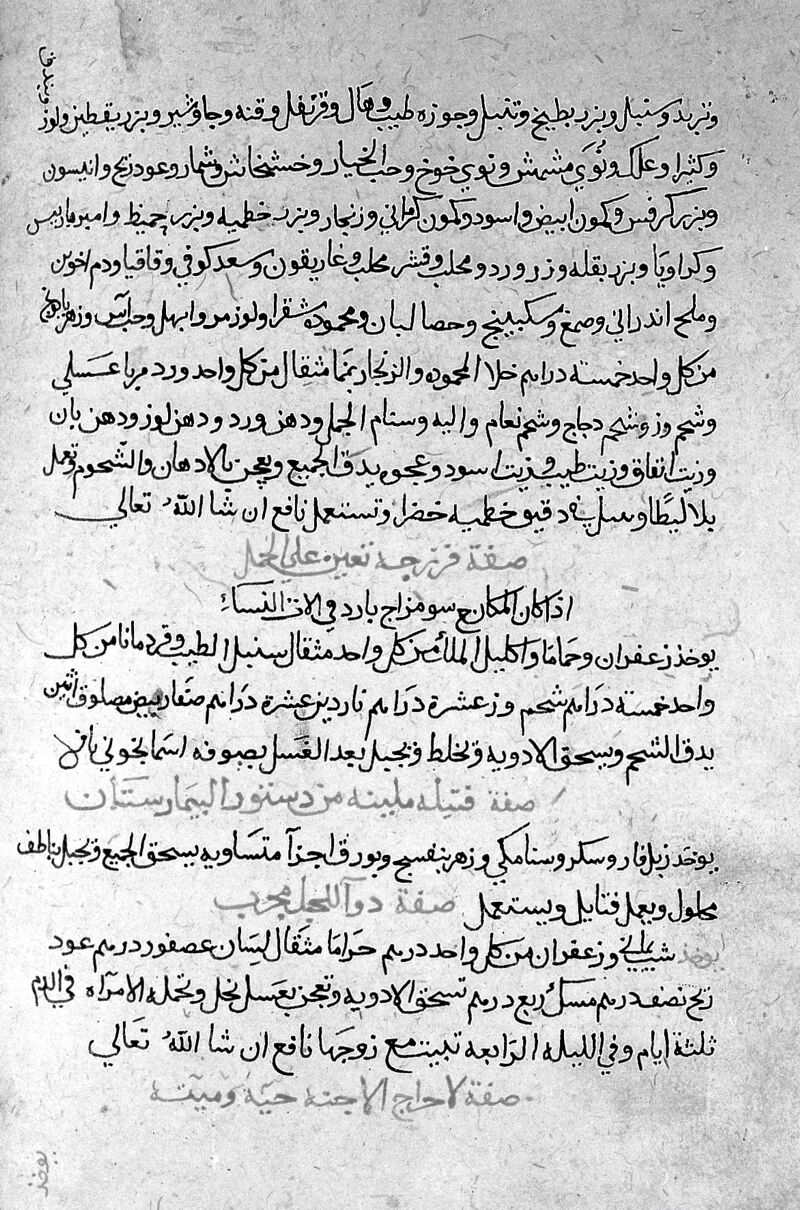 وبندق
وتربد وسنبل وبزر بطيخ وتنبل وجوزه طيب وهال وقرنفل وقنه وجاوشير وبزر يقطين ولوز
وكثيرا وعلك ونوي مشمش ونوي خوخ وحب الخيار وخشخاش وشمار وعود ريح وانيسون
وبزر كرفس وكمون ابيض واسود وكمون كرماني وزنجار وبزر خطميه وبزر وامبرباريس
وكراويا وبزر بقله وزر ورد ومحلب وقشر محلب وغاريقون وسعد كوفي وقاقيا ودم اخوين
وملح اندراني وصمغ وسكبينج وحصا لبان ومحموده شقرا ولوز مر وابهل وحب آس وزهر
من كل واحد خمسة دراهم خلا المحموده والزنجار مثقال من كل واحد ورد مربا عسلي
وشحم وز وشحم دجاج وشحم نعام واليه وسنام الجمل ودهن ورد ودهن لوز ودهن بان
وزيت انفاق وزيت طيب وزيت اسود وعجوه يدق الجميع ويعجن بالادهان والشحوم وتعمل
بلاليطا دقيق خطميه خضرا وتستعمل نافع ان شا الله تعالي
صفة فرزجه تعين علي الحمل
اذا كان المكان مع سو مزاج بارد في الات النساء
يوخذ زعفران وحماما واكليل الملك من كل واحد مثقال سنبل الطيب وقردمانا من كل
واحد خمسة دراهم شحم وز عشرة دراهم ناردين عشرة دراهم صفار بيض مصلوق اثنين
يدق الشحم ويسحق الادويه وتخلط وتحبل بعد الغسل بصوفه اسمانجوني
صفة فتيله ملينه من دستور البيمارستان
يوخذ زبل فار وسكر وسنامكي وزهر بنفسج وبورق اجزآ متساويه يسحق الجميع ويجبل بناطف
محلول ويعمل فتايل ويستعمل صفة دوآ للحبل مجرب
يوخذ شب يماني وزعفران من كل واحد درهم حراما مثقال لسان عصفور درهم عود
ريح نصف درهم مسك ربع درهم تسحق الادويه وتعجن بعسل نحل وتحمله الامرآه في الدم
ثلثة ايام وفي الليله الرابعه تبيت مع زوجها نافع ان شا الله تعالي
صفة لاخراج الاجنه حيه وميته
يوخذ